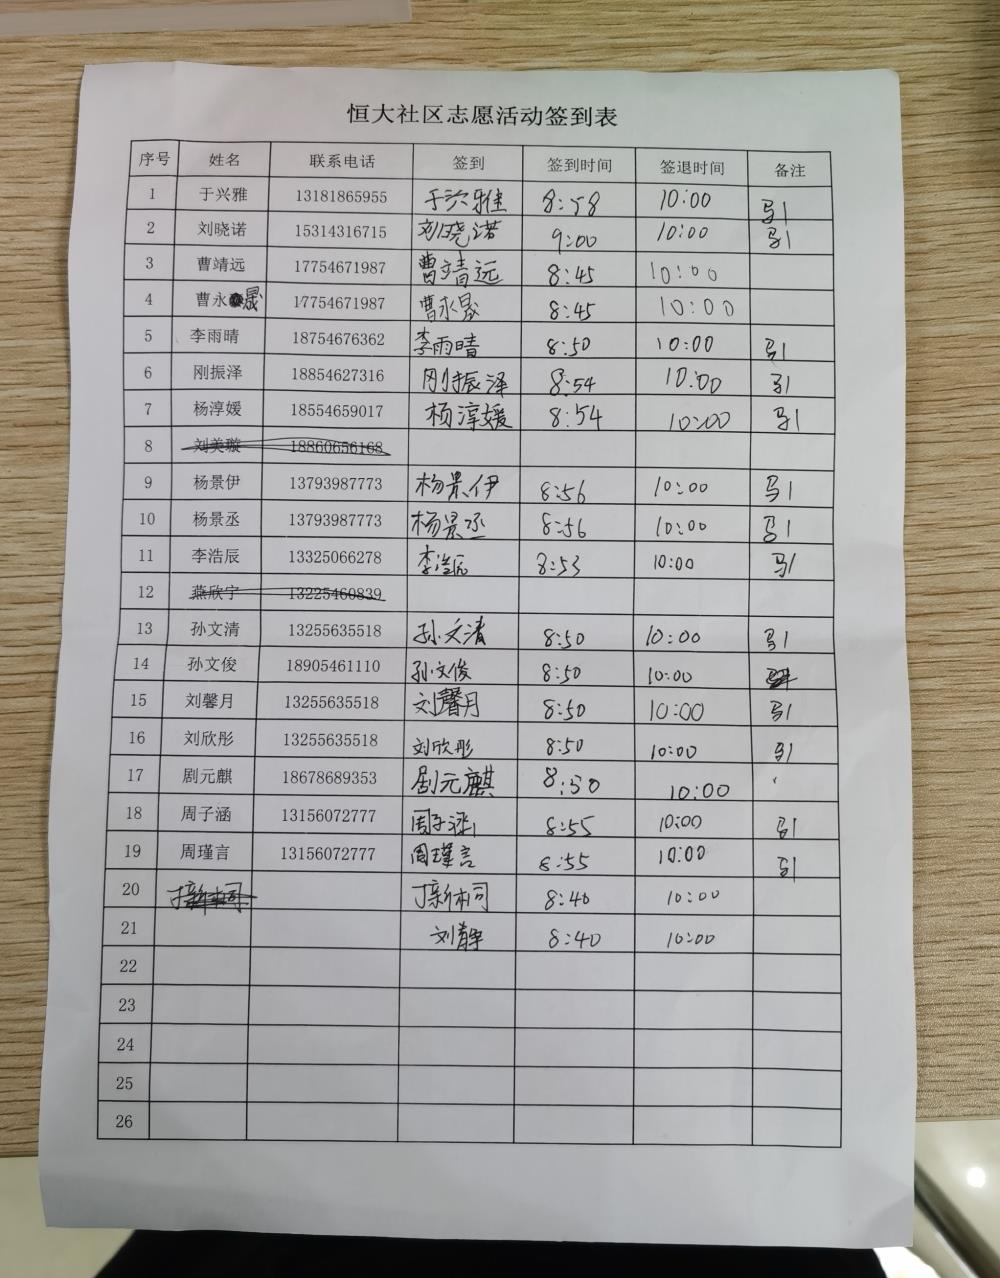 恒大社区志愿活动签到表
序号 姓名 联系电话 签到 签到时间 签退时间 备注
1 于兴雅 13181865955 于兴雅 8:58 10:00 马1
2 刘晓诺 15314316715 刘晓诺 9:00 10:00 马1
3 曹靖远 17754671987 曹靖远 8:45 10:00
4 曹永晟 17754671987 曹永晟 8:45 10:00
5 李雨晴 18754676362 李雨晴 8:50 10:00 马1
6 刚振泽 18854627316 刚振泽 8:54 10:00 马1
7 杨淳媛 18554659017 杨淳媛 8:54 10:00 马1
8 刘美璇 18860656168
9 杨景伊 13793987773 杨景伊 8:56 10:00 马1
10 杨景丞 13793987773 杨景丞 8:56 10:00 马1
11 李浩辰 13325066278 李浩辰 8:53 10:00 马1
12 燕欣宇 13225460839
13 孙文清 13255635518 孙文清 8:50 10:00 马1
14 孙文俊 18905461110 孙文俊 8:50 10:00
15 刘馨月 13255635518 刘馨月 8:50 10:00 马1
16 刘欣彤 13255635518 刘欣彤 8:50 10:00 马1
17 剧元麒 18678689353 剧元麒 8:50 10:00
18 周子涵 13156072777 周子涵 8:55 10:00 马1
19 周瑾言 13156072777 周瑾言 8:55 10:00 马1
20 8:40 10:00
21 刘静 8:40 10:00
22
23
24
25
26